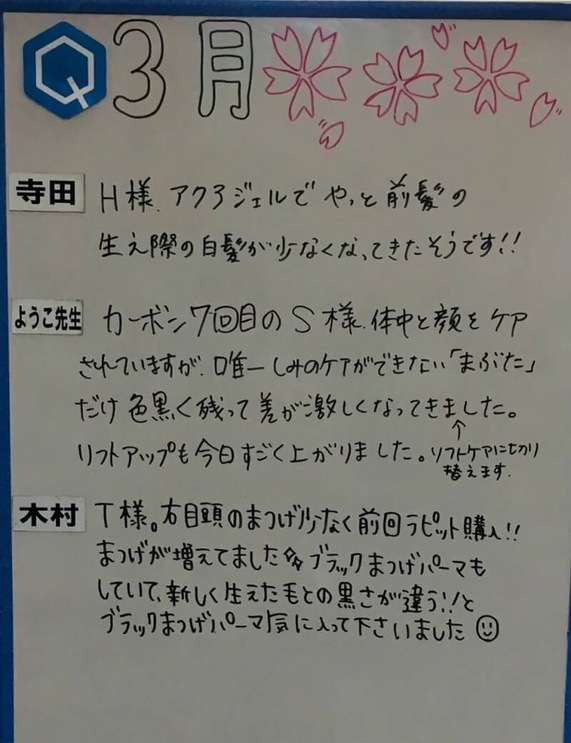 Q 3月
寺田 H様.アクアジェルでやっと前髪の
生え際の白髪が少なくなってきたそうです!!
ようこ先生 カーボン7回目のS様.体中と顔をケア
されていますが、唯一しみのケアができない「まぶた」
だけ色黒く残って差が激しくなってきました。
リフトアップも今日すごく上がりました。
↑
リフトケアに切り
替えます.
木村 T様。右目頭のまつげ少なく前回ラピット購入!!
まつげが増えてました ブラックまつげパーマも
していて、新しく生えた毛との黒さが違う!!と
ブラックまつげパーマ気に入って下さいました